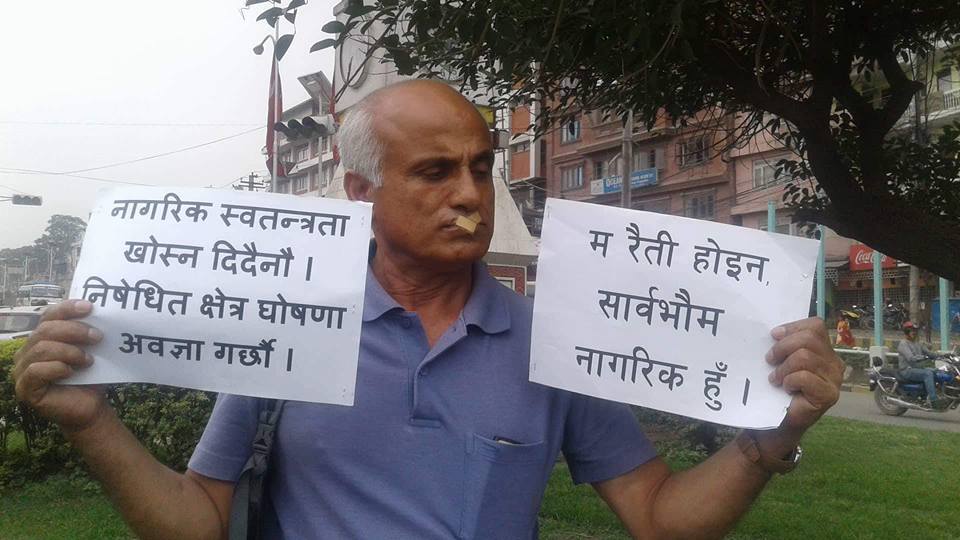 नागरिक स्वतन्त्रता
खोस्न दिदैनौ ।
निषेधित क्षेत्र घोषणा
अवज्ञा गर्छौ ।
म रैती होइन,
सार्वभौम
नागरिक हुँ ।
Coca-Cola